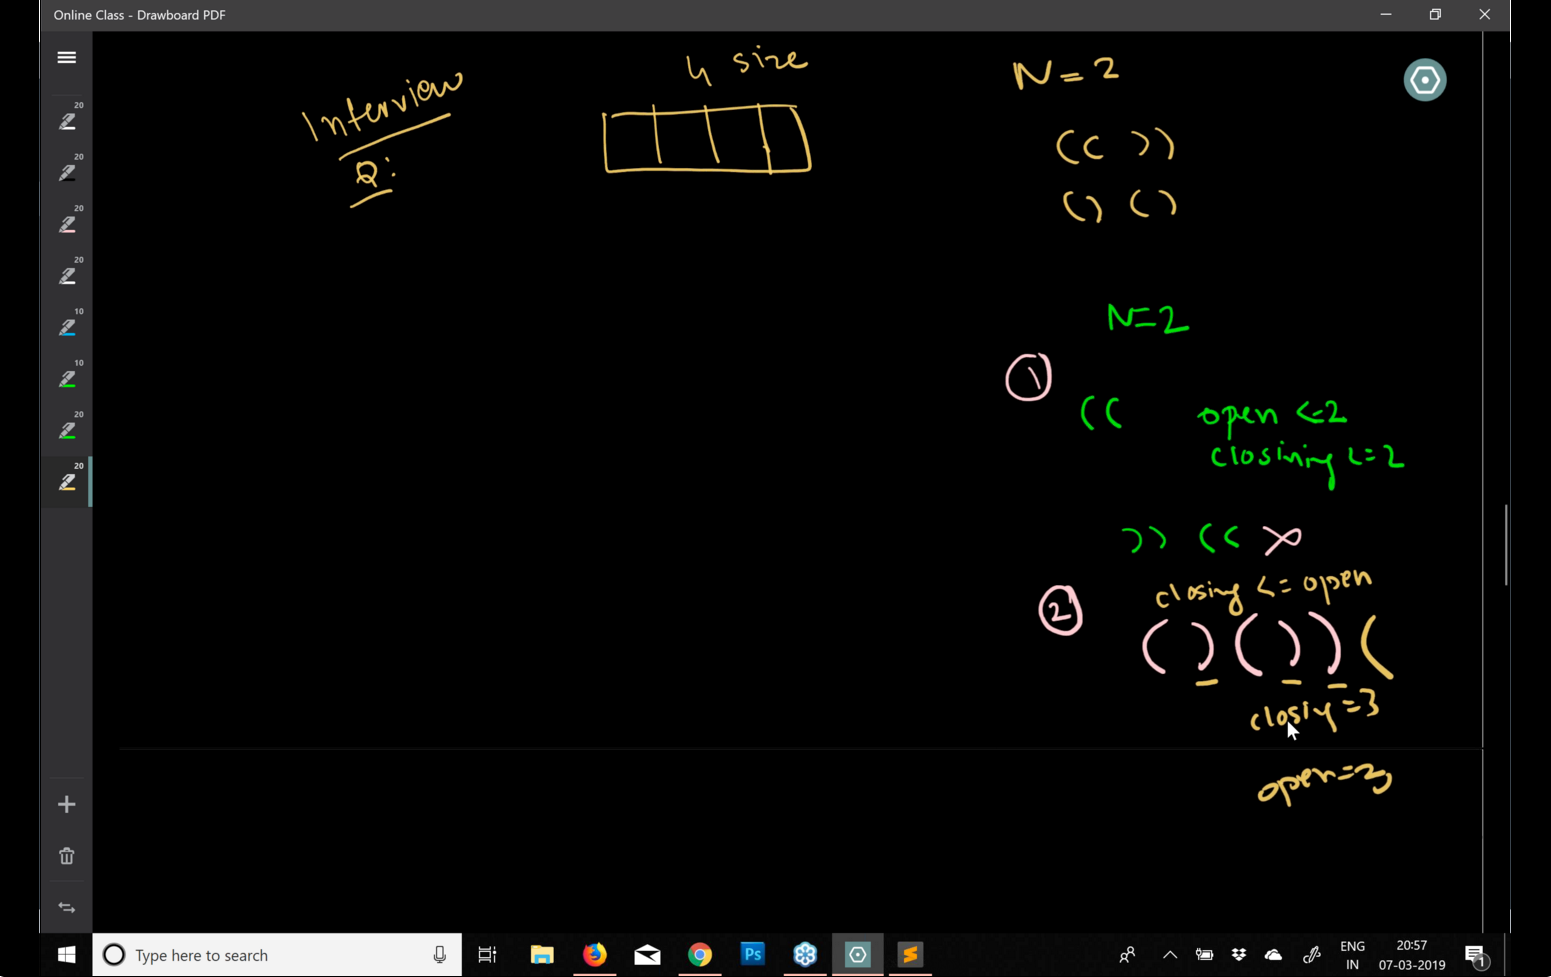 Online Class - Drawboard PDF
20
20
20
20
10
10
20
20
Interview
Q:
4 size
N = 2
(( ))
() ()
N=2
1
(( open <=2
closining <= 2
)) (( x
closing <= open
2
( ) ( ) ) (
closiy = 3
Type here to search
Ps
ENG
IN
20:57
07-03-2019
1